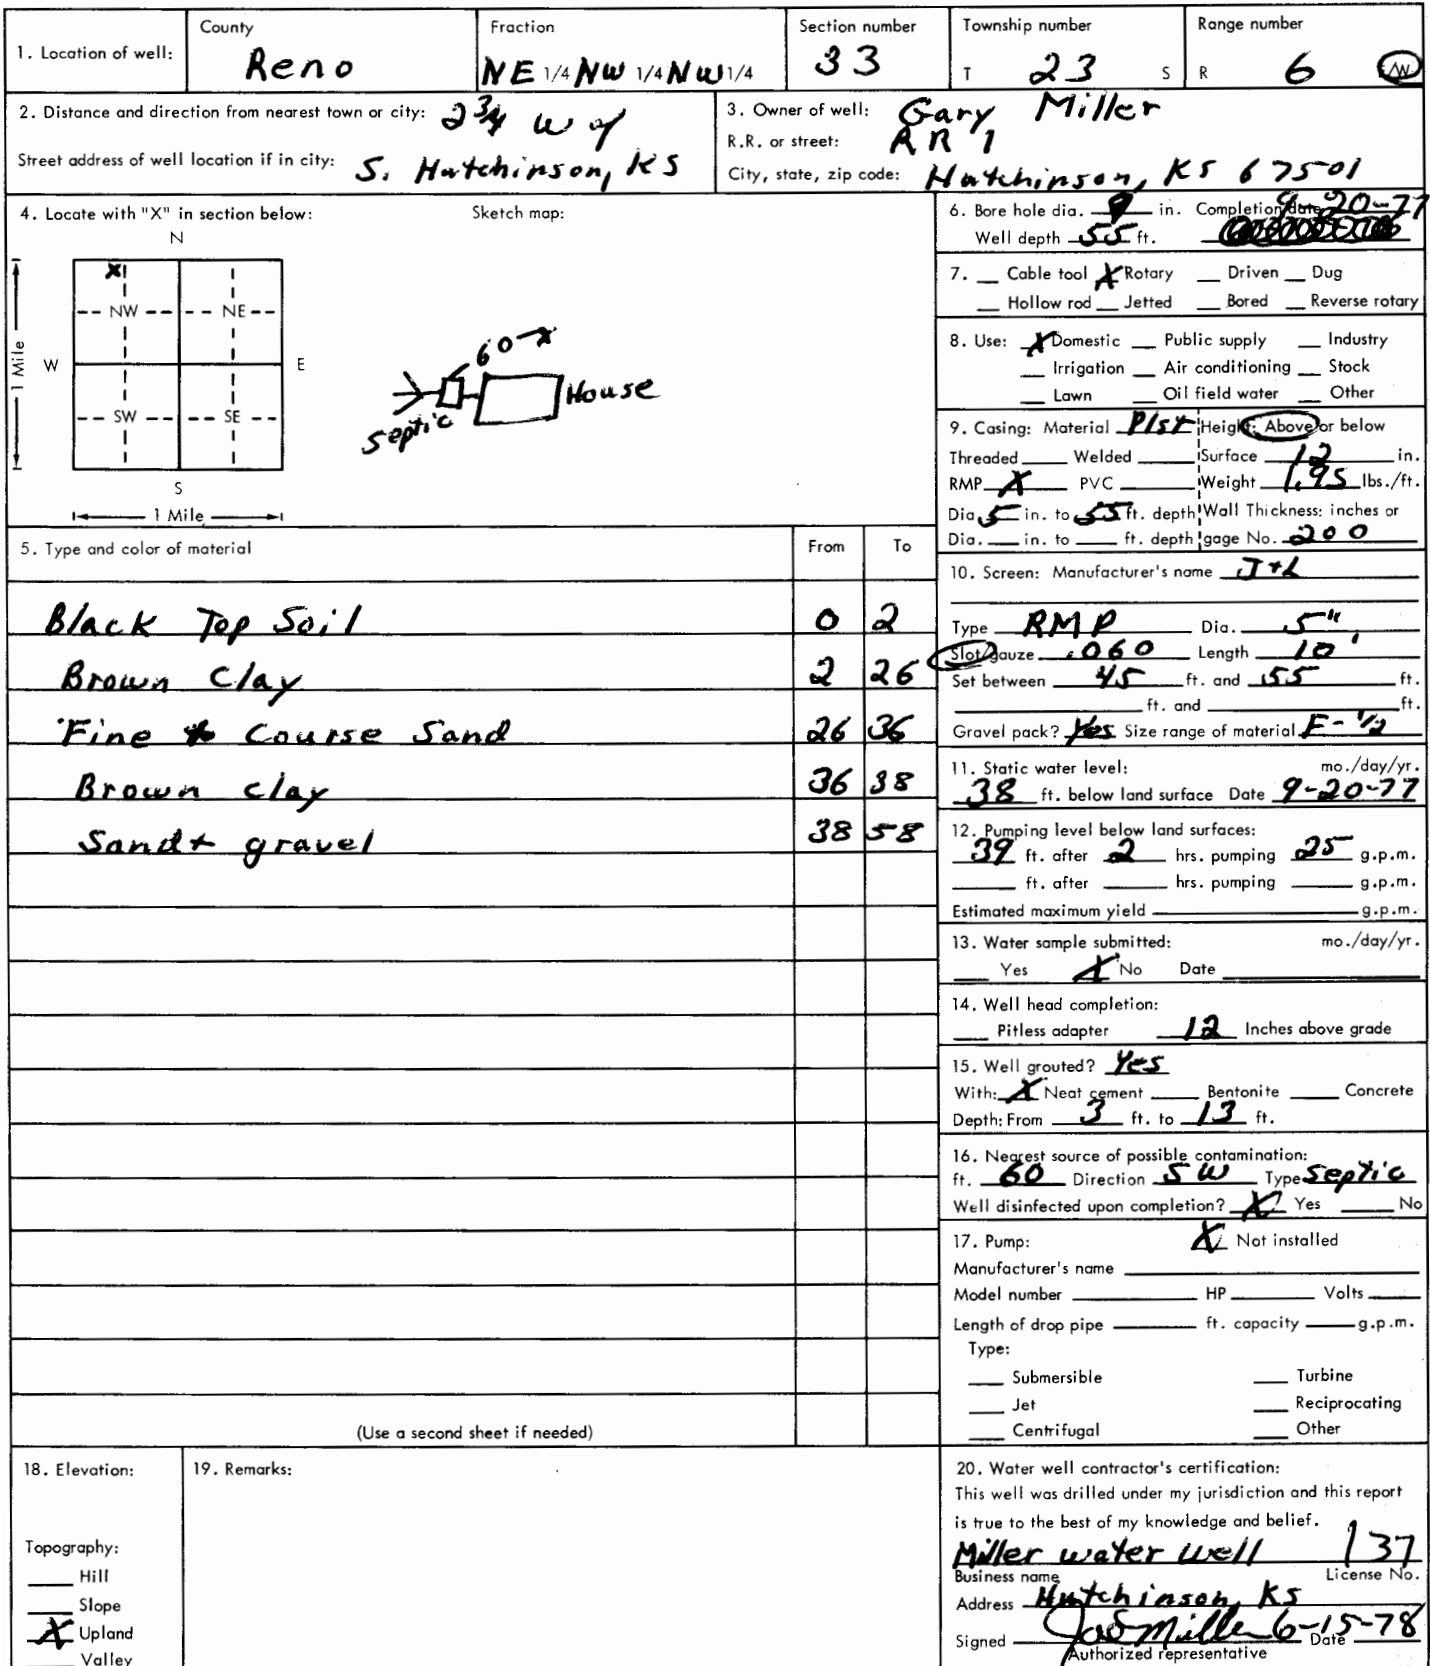 1. Location of well: County Reno Fraction NE 1/4 NW 1/4 NW 1/4 Section number 33 Township number T 23 S Range number R 6 E/W
2. Distance and direction from nearest town or city: 2 3/4 W of
Street address of well location if in city: S. Hutchinson, KS
3. Owner of well: Gary Miller
R.R. or street: RR 1
City, state, zip code: Hutchinson, KS 67501
4. Locate with "X" in section below: Sketch map:
N
X
NW NE
W E
SW SE
S
1 Mile
1 Mile
60 X
House
Septic
5. Type and color of material From To
Black Top Soil 0 2
Brown Clay 2 26
Fine to Course Sand 26 36
Brown clay 36 38
Sand + gravel 38 58
(Use a second sheet if needed)
6. Bore hole dia. 9 in. Completion date 9-20-77
Well depth 55 ft.
7. __ Cable tool X Rotary __ Driven __ Dug
__ Hollow rod __ Jetted __ Bored __ Reverse rotary
8. Use: X Domestic __ Public supply __ Industry
__ Irrigation __ Air conditioning __ Stock
__ Lawn __ Oil field water __ Other
9. Casing: Material Plst Height: Above or below
Threaded ____ Welded ____ Surface 12 in.
RMP X PVC ____ Weight 1.95 lbs./ft.
Dia. 5 in. to 55 ft. depth Wall Thickness: inches or
Dia. __ in. to __ ft. depth gage No. 200
10. Screen: Manufacturer's name J+L
Type RMP Dia. 5"
Slot/gauze .060 Length 10'
Set between 45 ft. and 55 ft.
____ ft. and ____ ft.
Gravel pack? Yes Size range of material F-1/2
11. Static water level: mo./day/yr.
38 ft. below land surface Date 9-20-77
12. Pumping level below land surfaces:
39 ft. after 2 hrs. pumping 25 g.p.m.
____ ft. after ____ hrs. pumping ____ g.p.m.
Estimated maximum yield ____ g.p.m.
13. Water sample submitted: mo./day/yr.
__ Yes X No Date ____
14. Well head completion:
__ Pitless adapter 12 Inches above grade
15. Well grouted? Yes
With: X Neat cement ____ Bentonite ____ Concrete
Depth: From 3 ft. to 13 ft.
16. Nearest source of possible contamination:
ft. 60 Direction SW Type Septic
Well disinfected upon completion? X Yes ____ No
17. Pump: X Not installed
Manufacturer's name ____
Model number ____ HP ____ Volts ____
Length of drop pipe ____ ft. capacity ____ g.p.m.
Type:
__ Submersible __ Turbine
__ Jet __ Reciprocating
__ Centrifugal __ Other
18. Elevation:
Topography:
__ Hill
__ Slope
X Upland
__ Valley
19. Remarks:
20. Water well contractor's certification:
This well was drilled under my jurisdiction and this report
is true to the best of my knowledge and belief.
Miller water well 137
Business name License No.
Address Hutchinson, KS
Signed Miller Date 6-15-78
Authorized representative